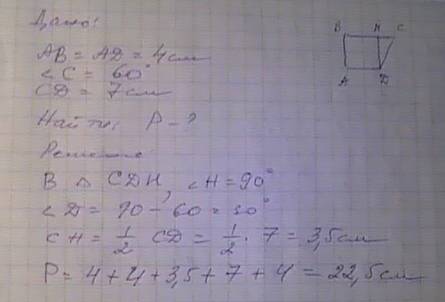 Дано:
B H C
A D
AB = AD = 4 см
∠C = 60°
CD = 7 см
Найти: P - ?
Решение
В △ CDH, ∠H = 90°
∠D = 90 - 60 = 30°
CH = 1/2 CD = 1/2 · 7 = 3,5 см
P = 4 + 4 + 3,5 + 7 + 4 = 22,5 см